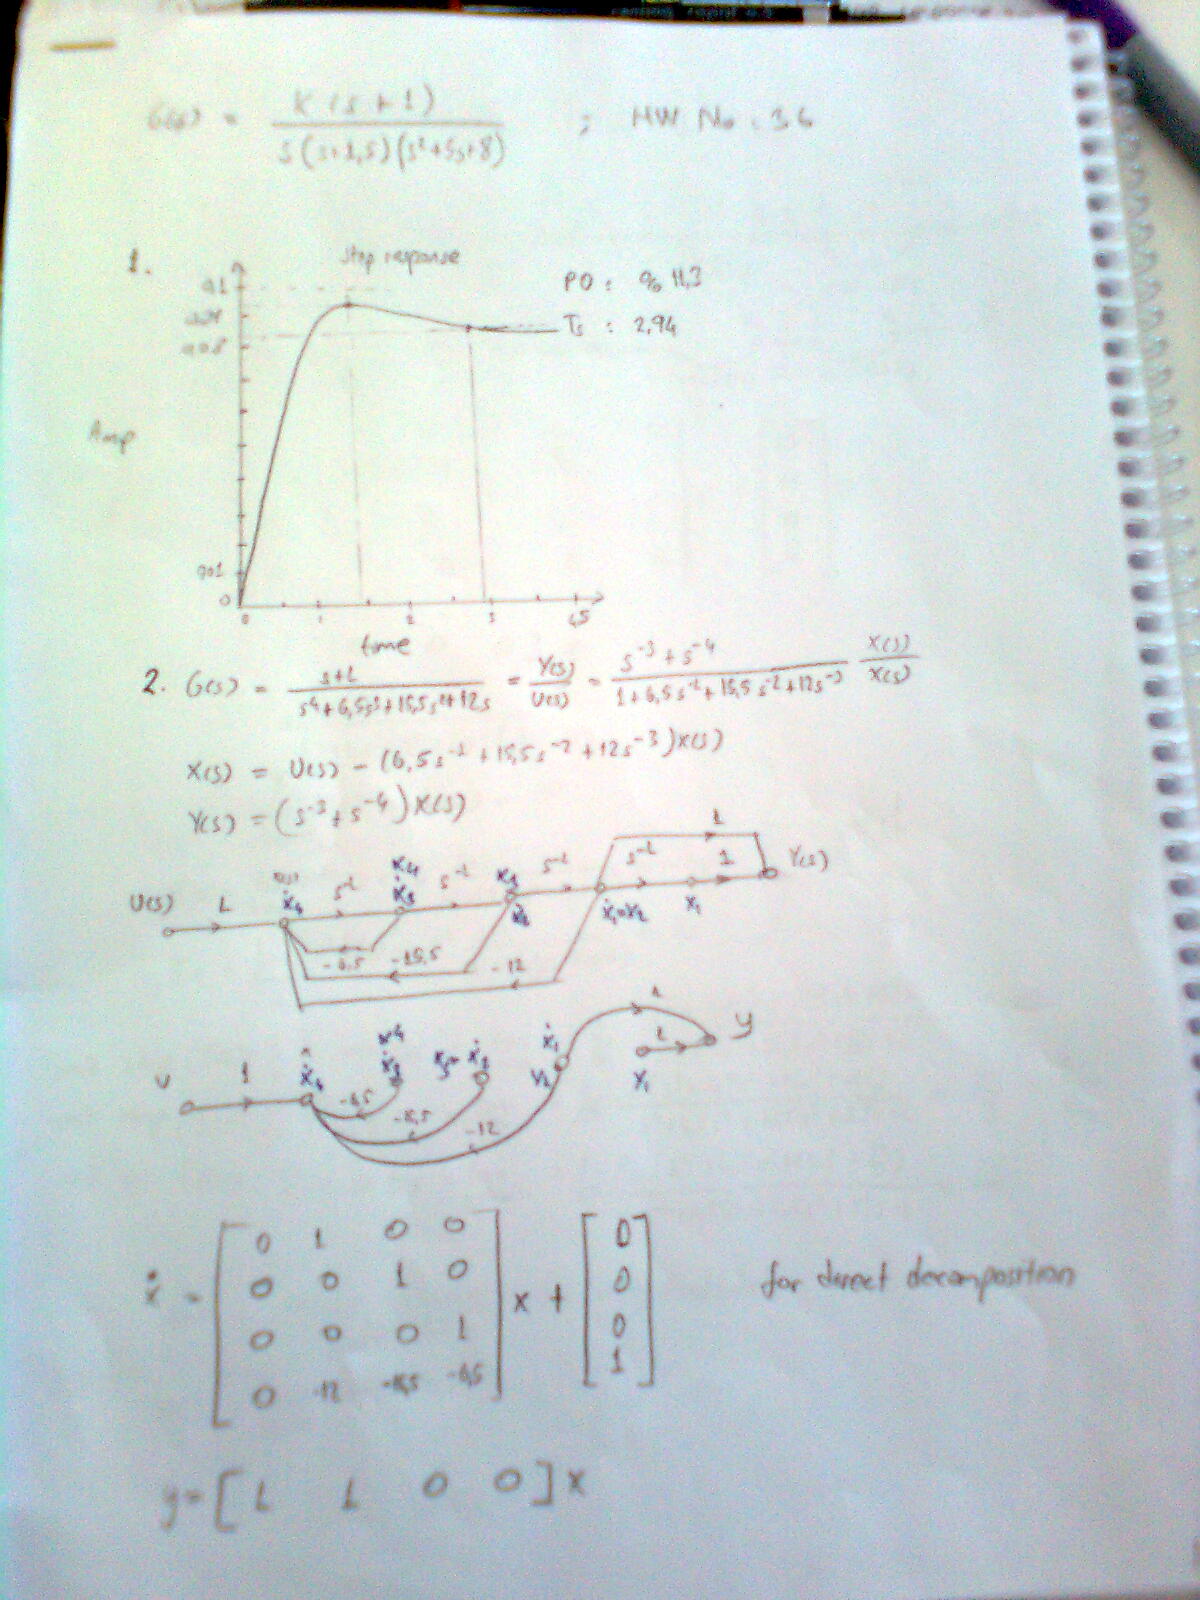 G(s) = K(s+1) / s(s+1,5)(s²+5s+8) ; HW No : 36
1.
Step response
PO : % 11,3
Ts : 2,94
0.1
0.08
Amp
0.01
0
0 1 2 3 4,5
time
2. G(s) = s+1 / s⁴+6,5s³+15,5s²+12s = Y(s)/U(s) = s⁻³+s⁻⁴ / 1+6,5s⁻¹+15,5s⁻²+12s⁻³ X(s)/X(s)
X(s) = U(s) - (6,5s⁻¹+15,5s⁻²+12s⁻³)X(s)
Y(s) = (s⁻³+s⁻⁴)X(s)
1
U(s) 1 ẋ₄ s⁻¹ x₄ ẋ₃ s⁻¹ x₃ ẋ₂ s⁻¹ ẋ₁=x₂ s⁻¹ x₁ 1 Y(s)
-6,5 -15,5 -12
1
U 1 ẋ₄ x₄ ẋ₃ x₃=ẋ₂ ẋ₁ x₂ x₁ 1 y
-6,5 -15,5 -12
0 1 0 0 0
0 0 1 0 0
ẋ = x + for direct decomposition
0 0 0 1 0
0 -12 -15,5 -6,5 1
y = [1 1 0 0] x